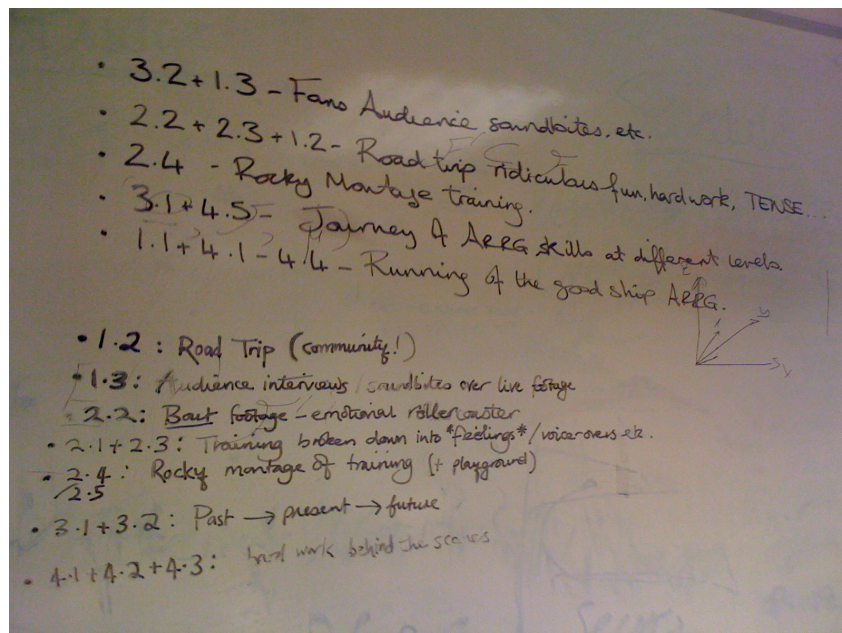 • 3.2 + 1.3 - Fans Audience soundbites, etc.
• 2.2 + 2.3 + 1.2 - Road trip ridiculous fun, hardwork, TENSE...
• 2.4 - Rocky Montage training.
• 3.1 + 4.5 - Journey of ARRG skills at different levels.
• 1.1 + 4.1 - 4.4 - Running of the good ship ARRG.
• 1.2 : Road Trip (community!)
• 1.3 : Audience interviews / soundbites over live footage
• 2.2 : Bout footage - emotional rollercoaster
• 2.1 + 2.3 : Training broken down into *feelings* / voice-overs etc.
• 2.4 : Rocky montage of training (+ playground)
/2.5
• 3.1 + 3.2 : Past → present → future
• 4.1 + 4.2 + 4.3 : hard work behind the scenes